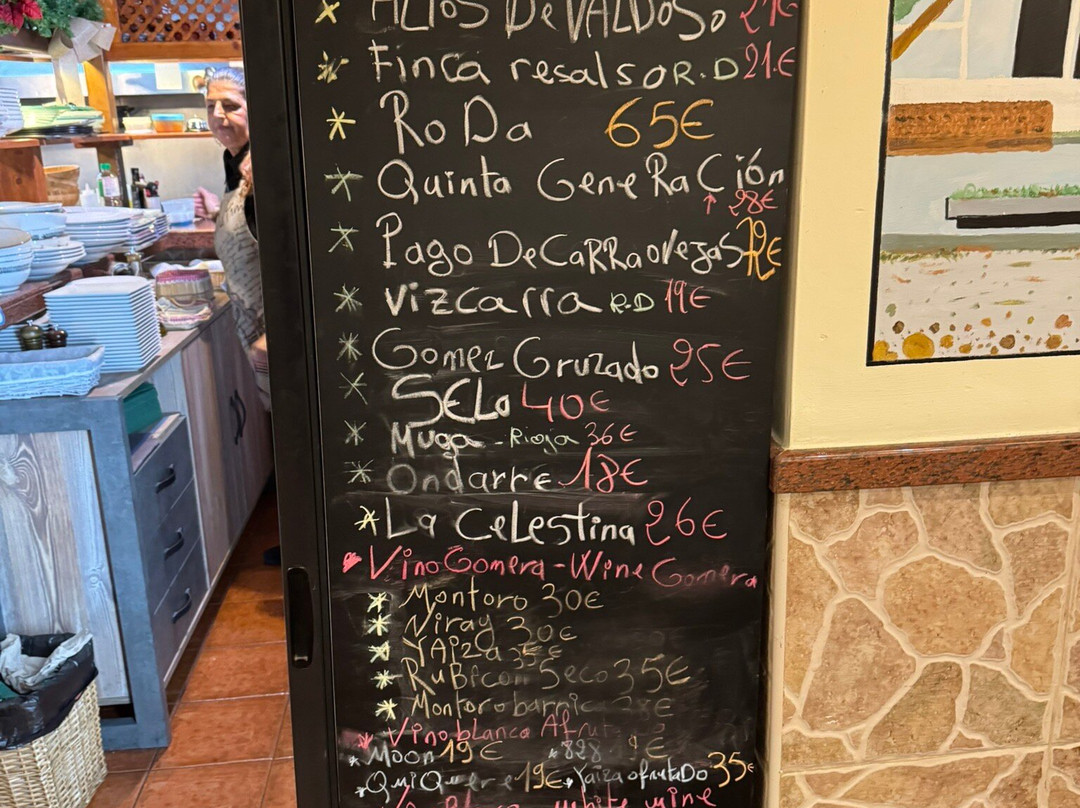 ALTOS De VALDOSO 21€
Finca resalso R.D 21.€
RoDa 65€
Quinta GeneRaCión
↑ 28€
Pago DeCaRRaovejas 72€
Vizcarra R.D 19€
Gomez Cruzado 25€
SELa 40€
Muga - Rioja 36€
Ondarre 18€
La Celestina 26€
Vino Gomera - Wine Gomera
Montoro 30€
Viray 30€
YAiza 35€
RuBicon Seco 35€
Montoro barric
Vino blanco Afrut
Moon 19€ *828 €
QuiQuere 19€ * Yaiza afrutaDo 35€
white wine